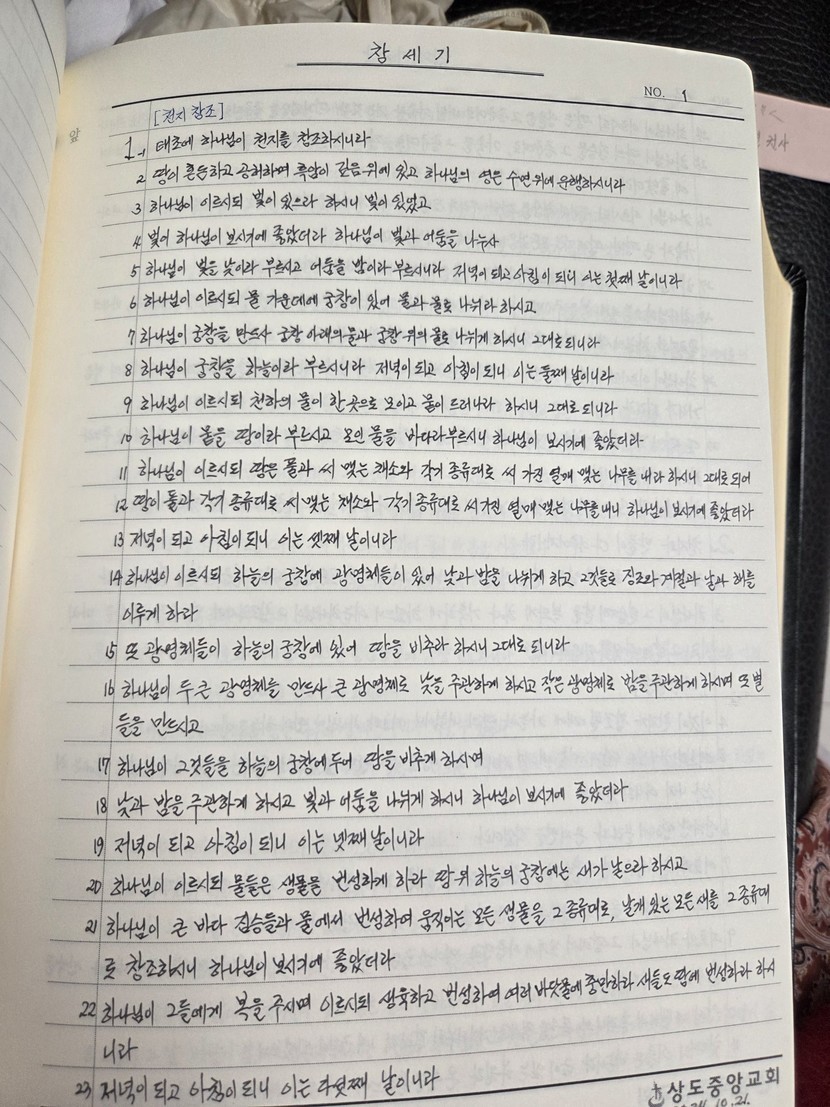 창 세 기
NO. 1
[천지 창조]
앞
1-1 태초에 하나님이 천지를 창조하시니라
2 땅이 혼돈하고 공허하며 흑암이 깊음 위에 있고 하나님의 영은 수면 위에 운행하시니라
3 하나님이 이르시되 빛이 있으라 하시니 빛이 있었고
4 빛이 하나님이 보시기에 좋았더라 하나님이 빛과 어둠을 나누사
5 하나님이 빛을 낮이라 부르시고 어둠을 밤이라 부르시니라 저녁이 되고 아침이 되니 이는 첫째 날이니라
6 하나님이 이르시되 물 가운데에 궁창이 있어 물과 물로 나뉘라 하시고
7 하나님이 궁창을 만드사 궁창 아래의 물과 궁창 위의 물로 나뉘게 하시니 그대로 되니라
8 하나님이 궁창을 하늘이라 부르시니라 저녁이 되고 아침이 되니 이는 둘째 날이니라
9 하나님이 이르시되 천하의 물이 한 곳으로 모이고 뭍이 드러나라 하시니 그대로 되니라
10 하나님이 뭍을 땅이라 부르시고 모인 물을 바다라 부르시니 하나님이 보시기에 좋았더라
11 하나님이 이르시되 땅은 풀과 씨 맺는 채소와 각기 종류대로 씨 가진 열매 맺는 나무를 내라 하시니 그대로 되어
12 땅이 풀과 각기 종류대로 씨 맺는 채소와 각기 종류대로 씨 가진 열매 맺는 나무를 내니 하나님이 보시기에 좋았더라
13 저녁이 되고 아침이 되니 이는 셋째 날이니라
14 하나님이 이르시되 하늘의 궁창에 광명체들이 있어 낮과 밤을 나뉘게 하고 그것들로 징조와 계절과 날과 해를
이루게 하라
15 또 광명체들이 하늘의 궁창에 있어 땅을 비추라 하시니 그대로 되니라
16 하나님이 두 큰 광명체를 만드사 큰 광명체로 낮을 주관하게 하시고 작은 광명체로 밤을 주관하게 하시며 또 별
들을 만드시고
17 하나님이 그것들을 하늘의 궁창에 두어 땅을 비추게 하시며
18 낮과 밤을 주관하게 하시고 빛과 어둠을 나뉘게 하시니 하나님이 보시기에 좋았더라
19 저녁이 되고 아침이 되니 이는 넷째 날이니라
20 하나님이 이르시되 물들은 생물을 번성하게 하라 땅 위 하늘의 궁창에는 새가 날으라 하시고
21 하나님이 큰 바다 짐승들과 물에서 번성하여 움직이는 모든 생물을 그 종류대로, 날개 있는 모든 새를 그 종류대
로 창조하시니 하나님이 보시기에 좋았더라
22 하나님이 그들에게 복을 주시며 이르시되 생육하고 번성하여 여러 바닷물에 충만하라 새들도 땅에 번성하라 하시
니라
23 저녁이 되고 아침이 되니 이는 다섯째 날이니라
상도중앙교회